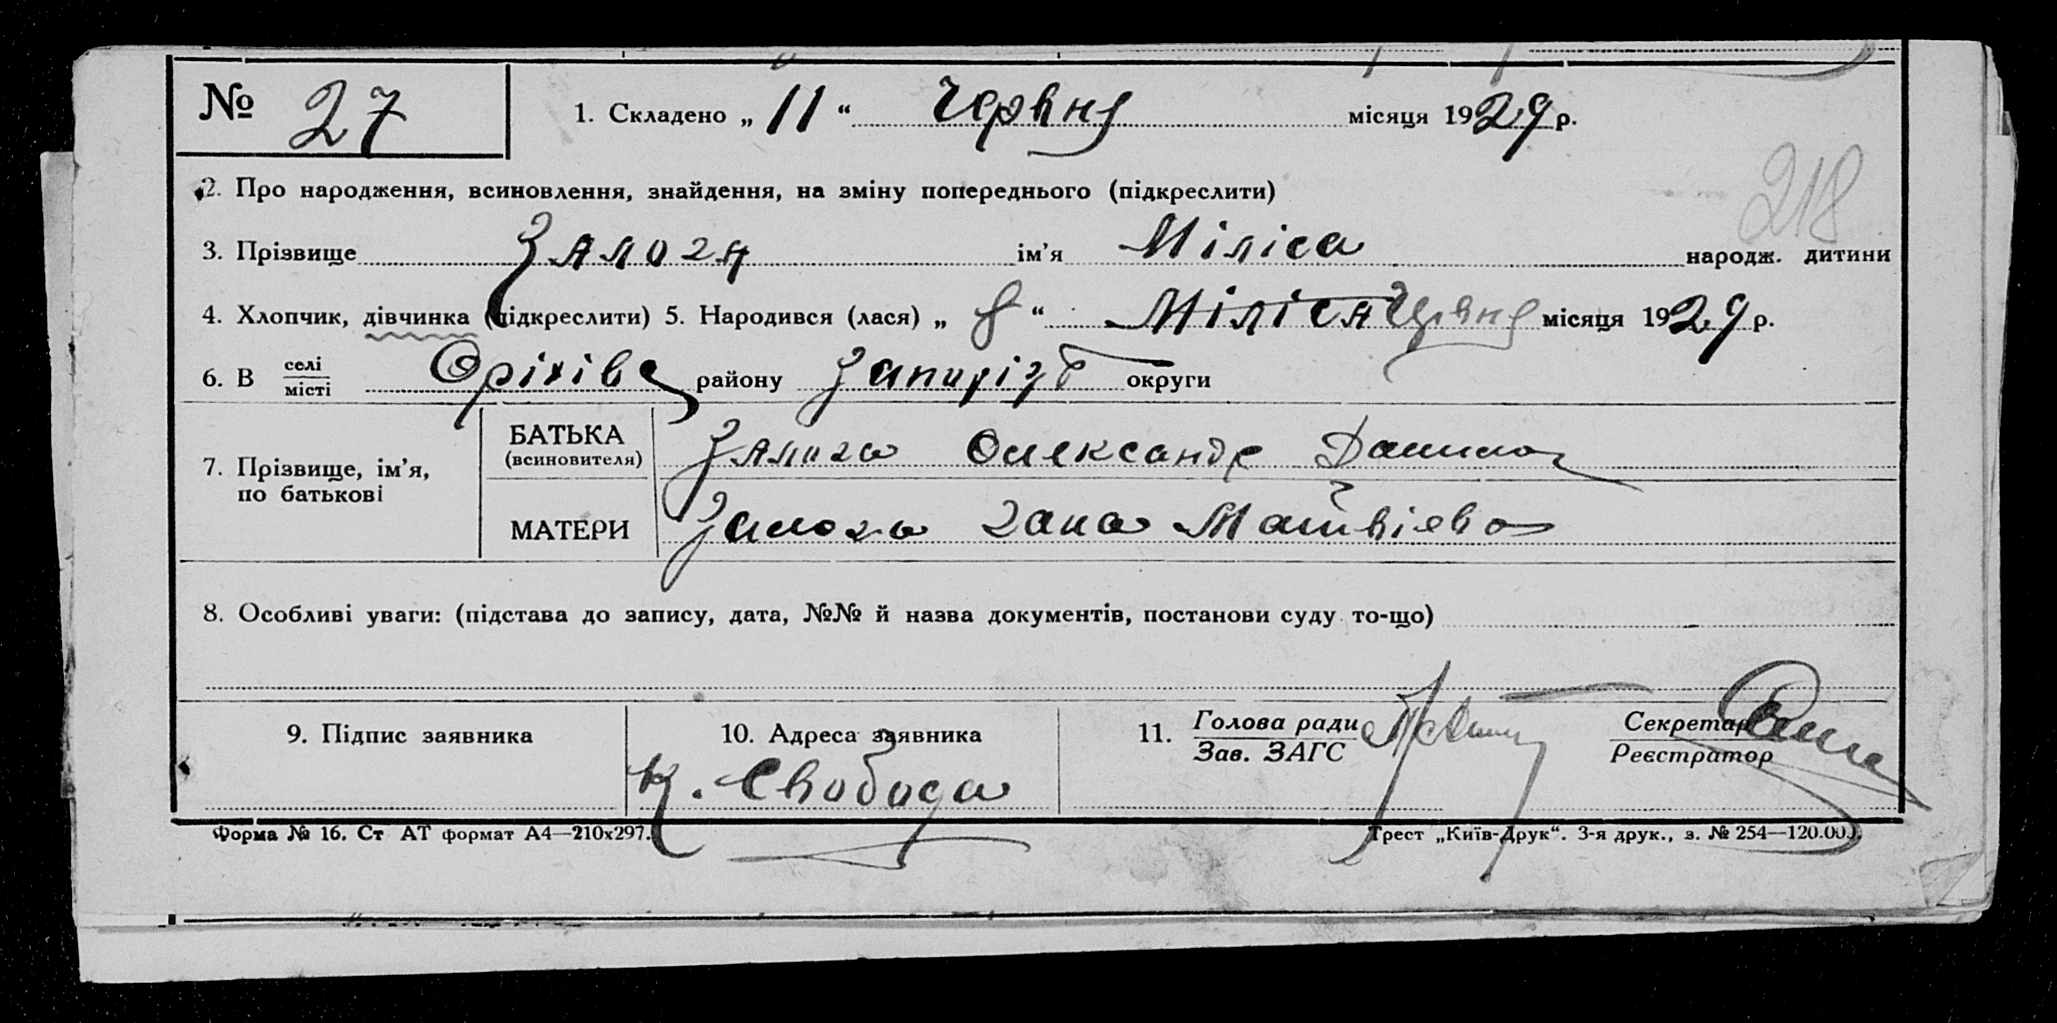 № 27 1. Складено „ 11 “ Червня місяця 1929 р.
2. Про народження, всиновлення, знайдення, на зміну попереднього (підкреслити)
218
3. Прізвище Залога ім’я Міліса народж. дитини
4. Хлопчик, дівчинка (підкреслити) 5. Народився (лася) „ 8 “ Міліса Червня місяця 1929 р.
6. В селі місті Оріхівс району Запоріз округи
7. Прізвище, ім’я, по батькові
БАТЬКА (всиновителя) Залога Олександр Данилов
МАТЕРИ Залога Гана Матвієва
8. Особливі уваги: (підстава до запису, дата, №№ й назва документів, постанови суду то-що)
9. Підпис заявника 10. Адреса заявника 11. Голова ради Зав. ЗАГС Секретар Реєстратор
К. Свобода
Форма № 16. Ст АТ формат А4—210х297. Трест „Київ-Друк“. 3-я друк., з. № 254—120.000.